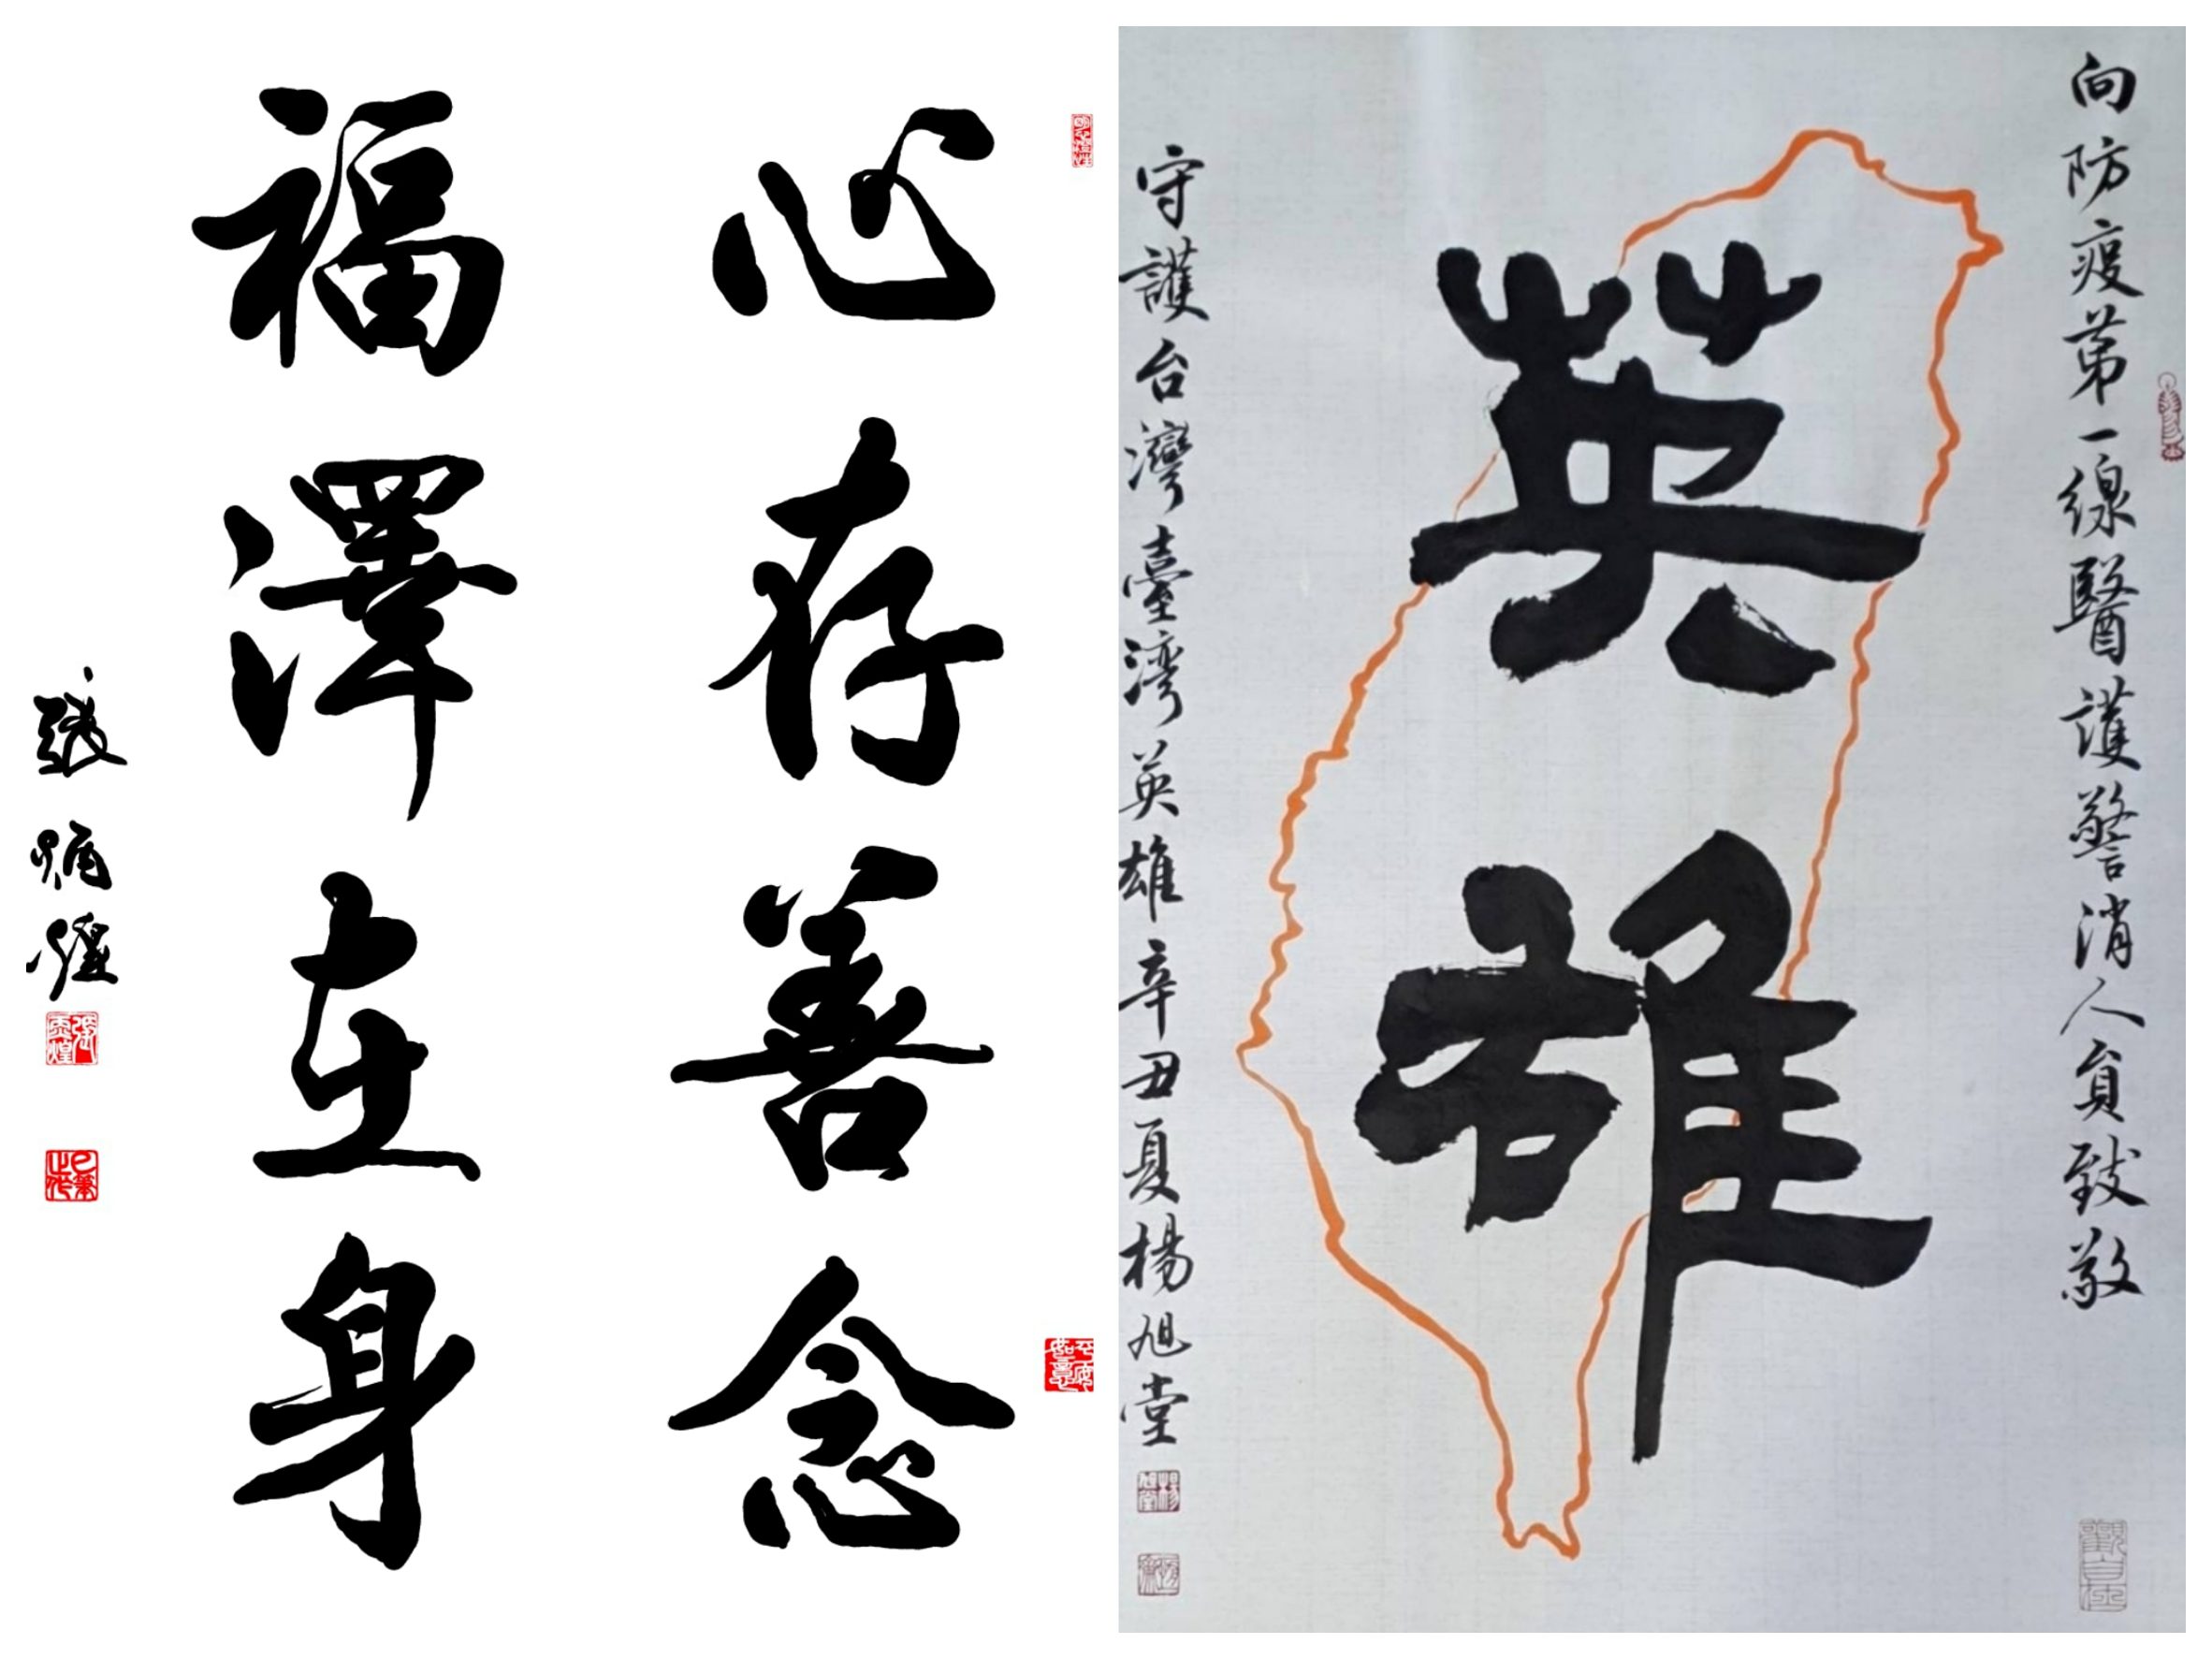 心存善念
福澤在身
張炳煌
張炳煌
平安如意
向防疫第一線醫護警消人員致敬
英雄
守護台灣臺湾英雄辛丑夏楊旭堂